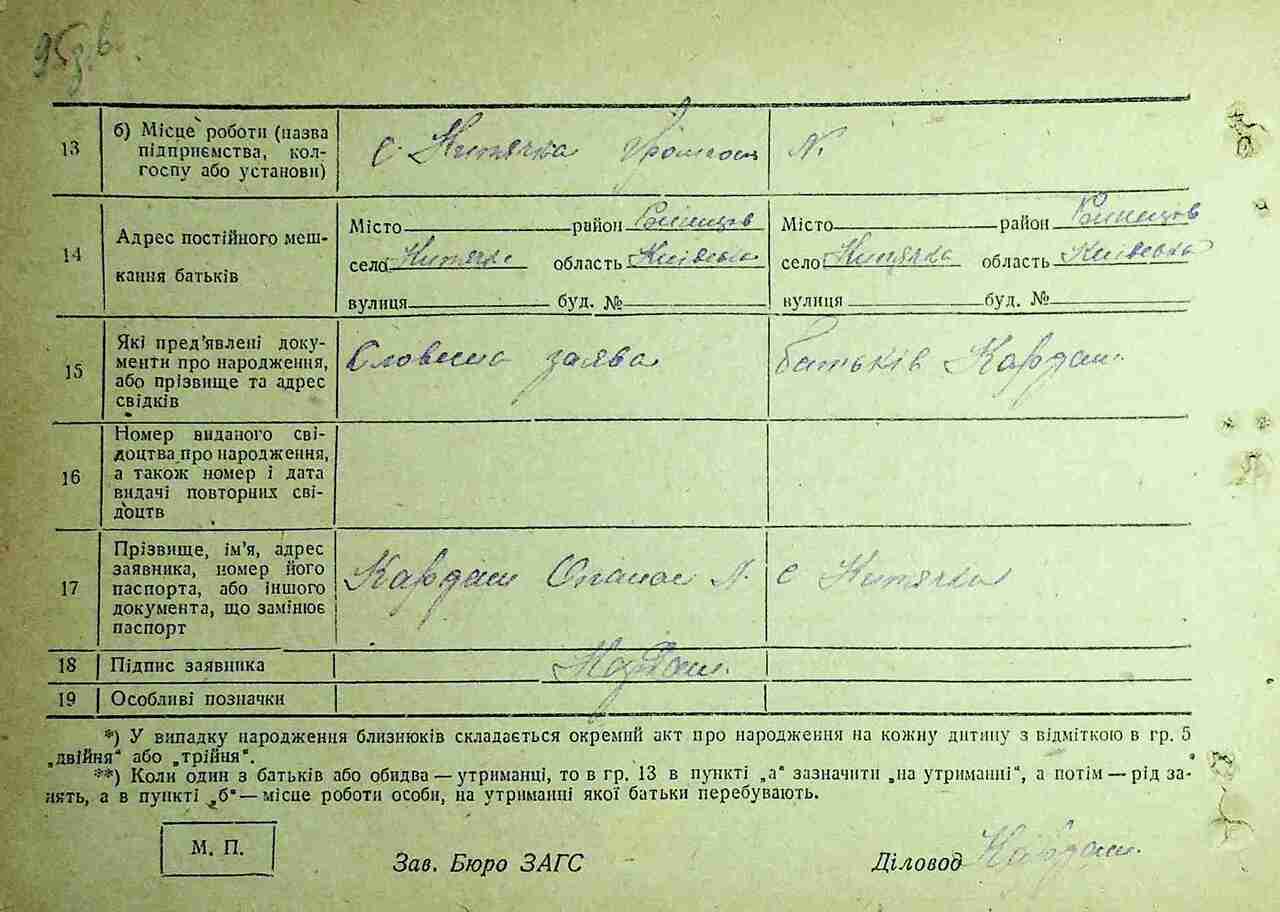 95 зв.
13 б) Місце роботи (назва підприємства, колгоспу або установи) с. Китячка
14 Адрес постійного меш-
кання батьків
Місто район
село область Київська
вулиця буд. №
Місто район
село область Київська
вулиця буд. №
15 Які пред'явлені доку-
менти про народження,
або прізвище та адрес
свідків
Словесна заява батьків Кардаш
16 Номер виданого сві-
доцтва про народження,
а також номер і дата
видачі повторних сві-
доцтв
17 Прізвище, ім'я, адрес
заявника, номер його
паспорта, або іншого
документа, що замінює
паспорт
Кардаш Опанас с
18 Підпис заявника Кардаш
19 Особливі позначки
*) У випадку народження близнюків складається окремий акт про народження на кожну дитину з відміткою в гр. 5
„двійня" або „трійня".
**) Коли один з батьків або обидва — утриманці, то в гр. 13 в пункті „а" зазначити „на утриманні", а потім — рід за-
нять, а в пункті „б" — місце роботи особи, на утриманні якої батьки перебувають.
М. П.
Зав. Бюро ЗАГС Діловод Кардаш